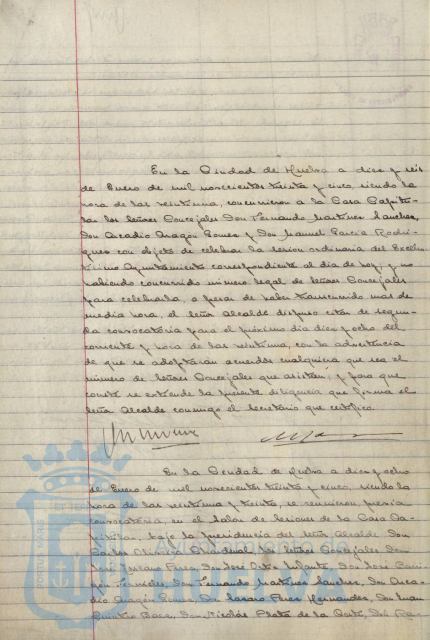 En la Ciudad de Huelva a diez y seis
de Enero de mil novecientos treinta y cinco, siendo la
hora de las veintiuna, concurrieron a la Casa Capitu-
lar los señores Concejales Don Fernando Martinez Sanchez,
Don Arcadio Aragón Gomez y Don Manuel Garcia Rodri-
guez con objeto de celebrar la sesion ordinaria del Excelen-
tisimo Ayuntamiento correspondiente al dia de hoy, y no
habiendo concurrido número legal de señores Concejales
para celebrarla, a pesar de haber transcurrido mas de
media hora, el señor Alcalde dispuso citar de segun-
da convocatoria para el próximo dia diez y ocho del
corriente y hora de las veintiuna, con la advertencia
de que se adoptarán acuerdos cualquiera que sea el
número de señores Concejales que asistan; y para que
conste se extiende la presente diligencia que firma el
señor Alcalde conmigo el Secretario que certifico.
En la Ciudad de Huelva a diez y ocho
de Enero de mil novecientos treinta y cinco, siendo la
hora de las veintiuna y treinta, se reunieron, previa
convocatoria, en el Salon de Sesiones de la Casa Ca-
pitular, bajo la Presidencia del señor Alcalde, Don
Carlos los señores Concejales Don
José Don José Ortiz Infante, Don José
Don Fernando Martinez Sanchez, Don Arca-
dio Aragón Gomez, Don Perez Hernandez, Don Juan
Quintero Baez, Don Nicolás de la Don